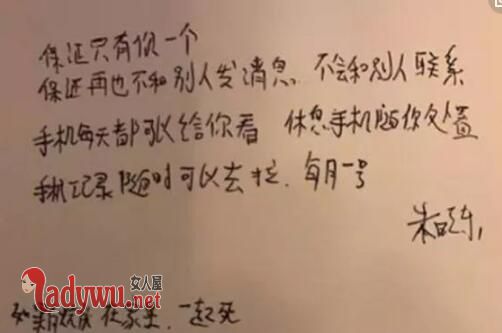 保证只有你一个
保证再也不和别人发消息 不会和别人联系
手机每天都可以给你看 休息手机随你处置
手机记录随时可以去拉. 每月一号
朱
女人屋
Ladywu.net
一起死